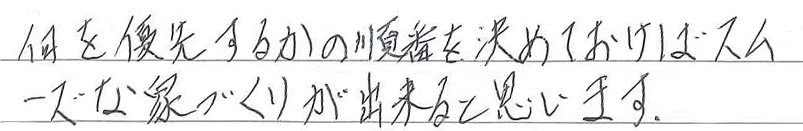 何を優先するかの順番を決めておけばスム
ーズな家づくりが出来ると思います.